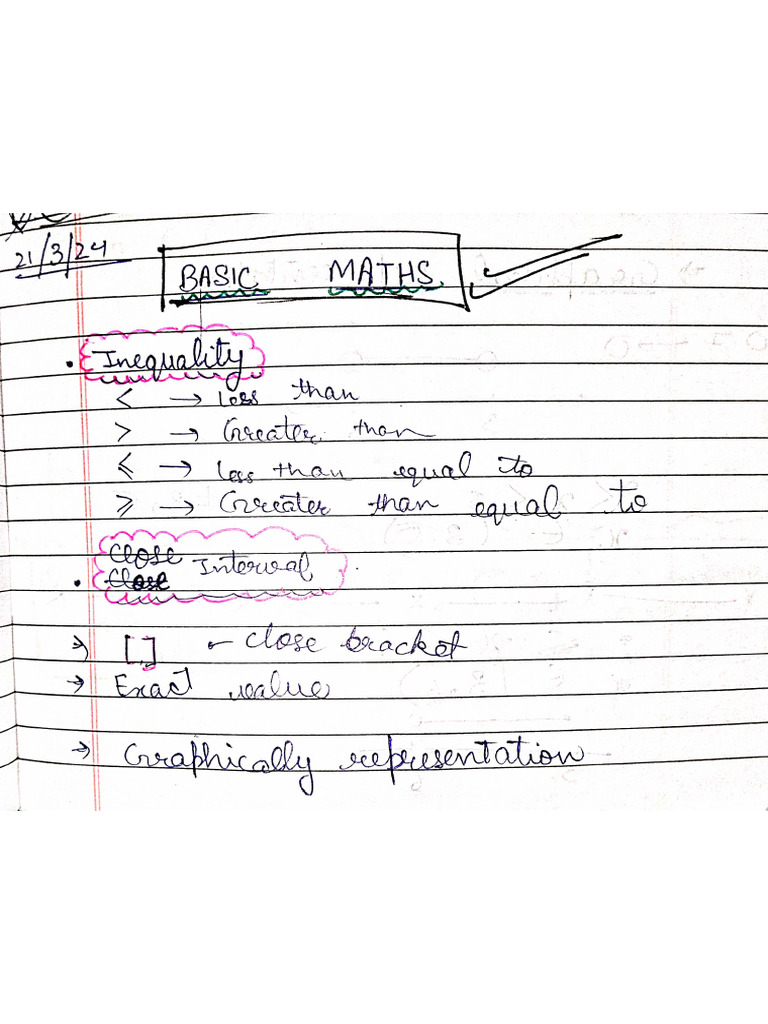 21/3/24
BASIC MATHS
• Inequality
< → Less than
> → Greater than
⩽ → Less than equal to
⩾ → Greater than equal to
close
• Close Interval
→ [ ] - close bracket
→ Exact value
→ Graphically representation